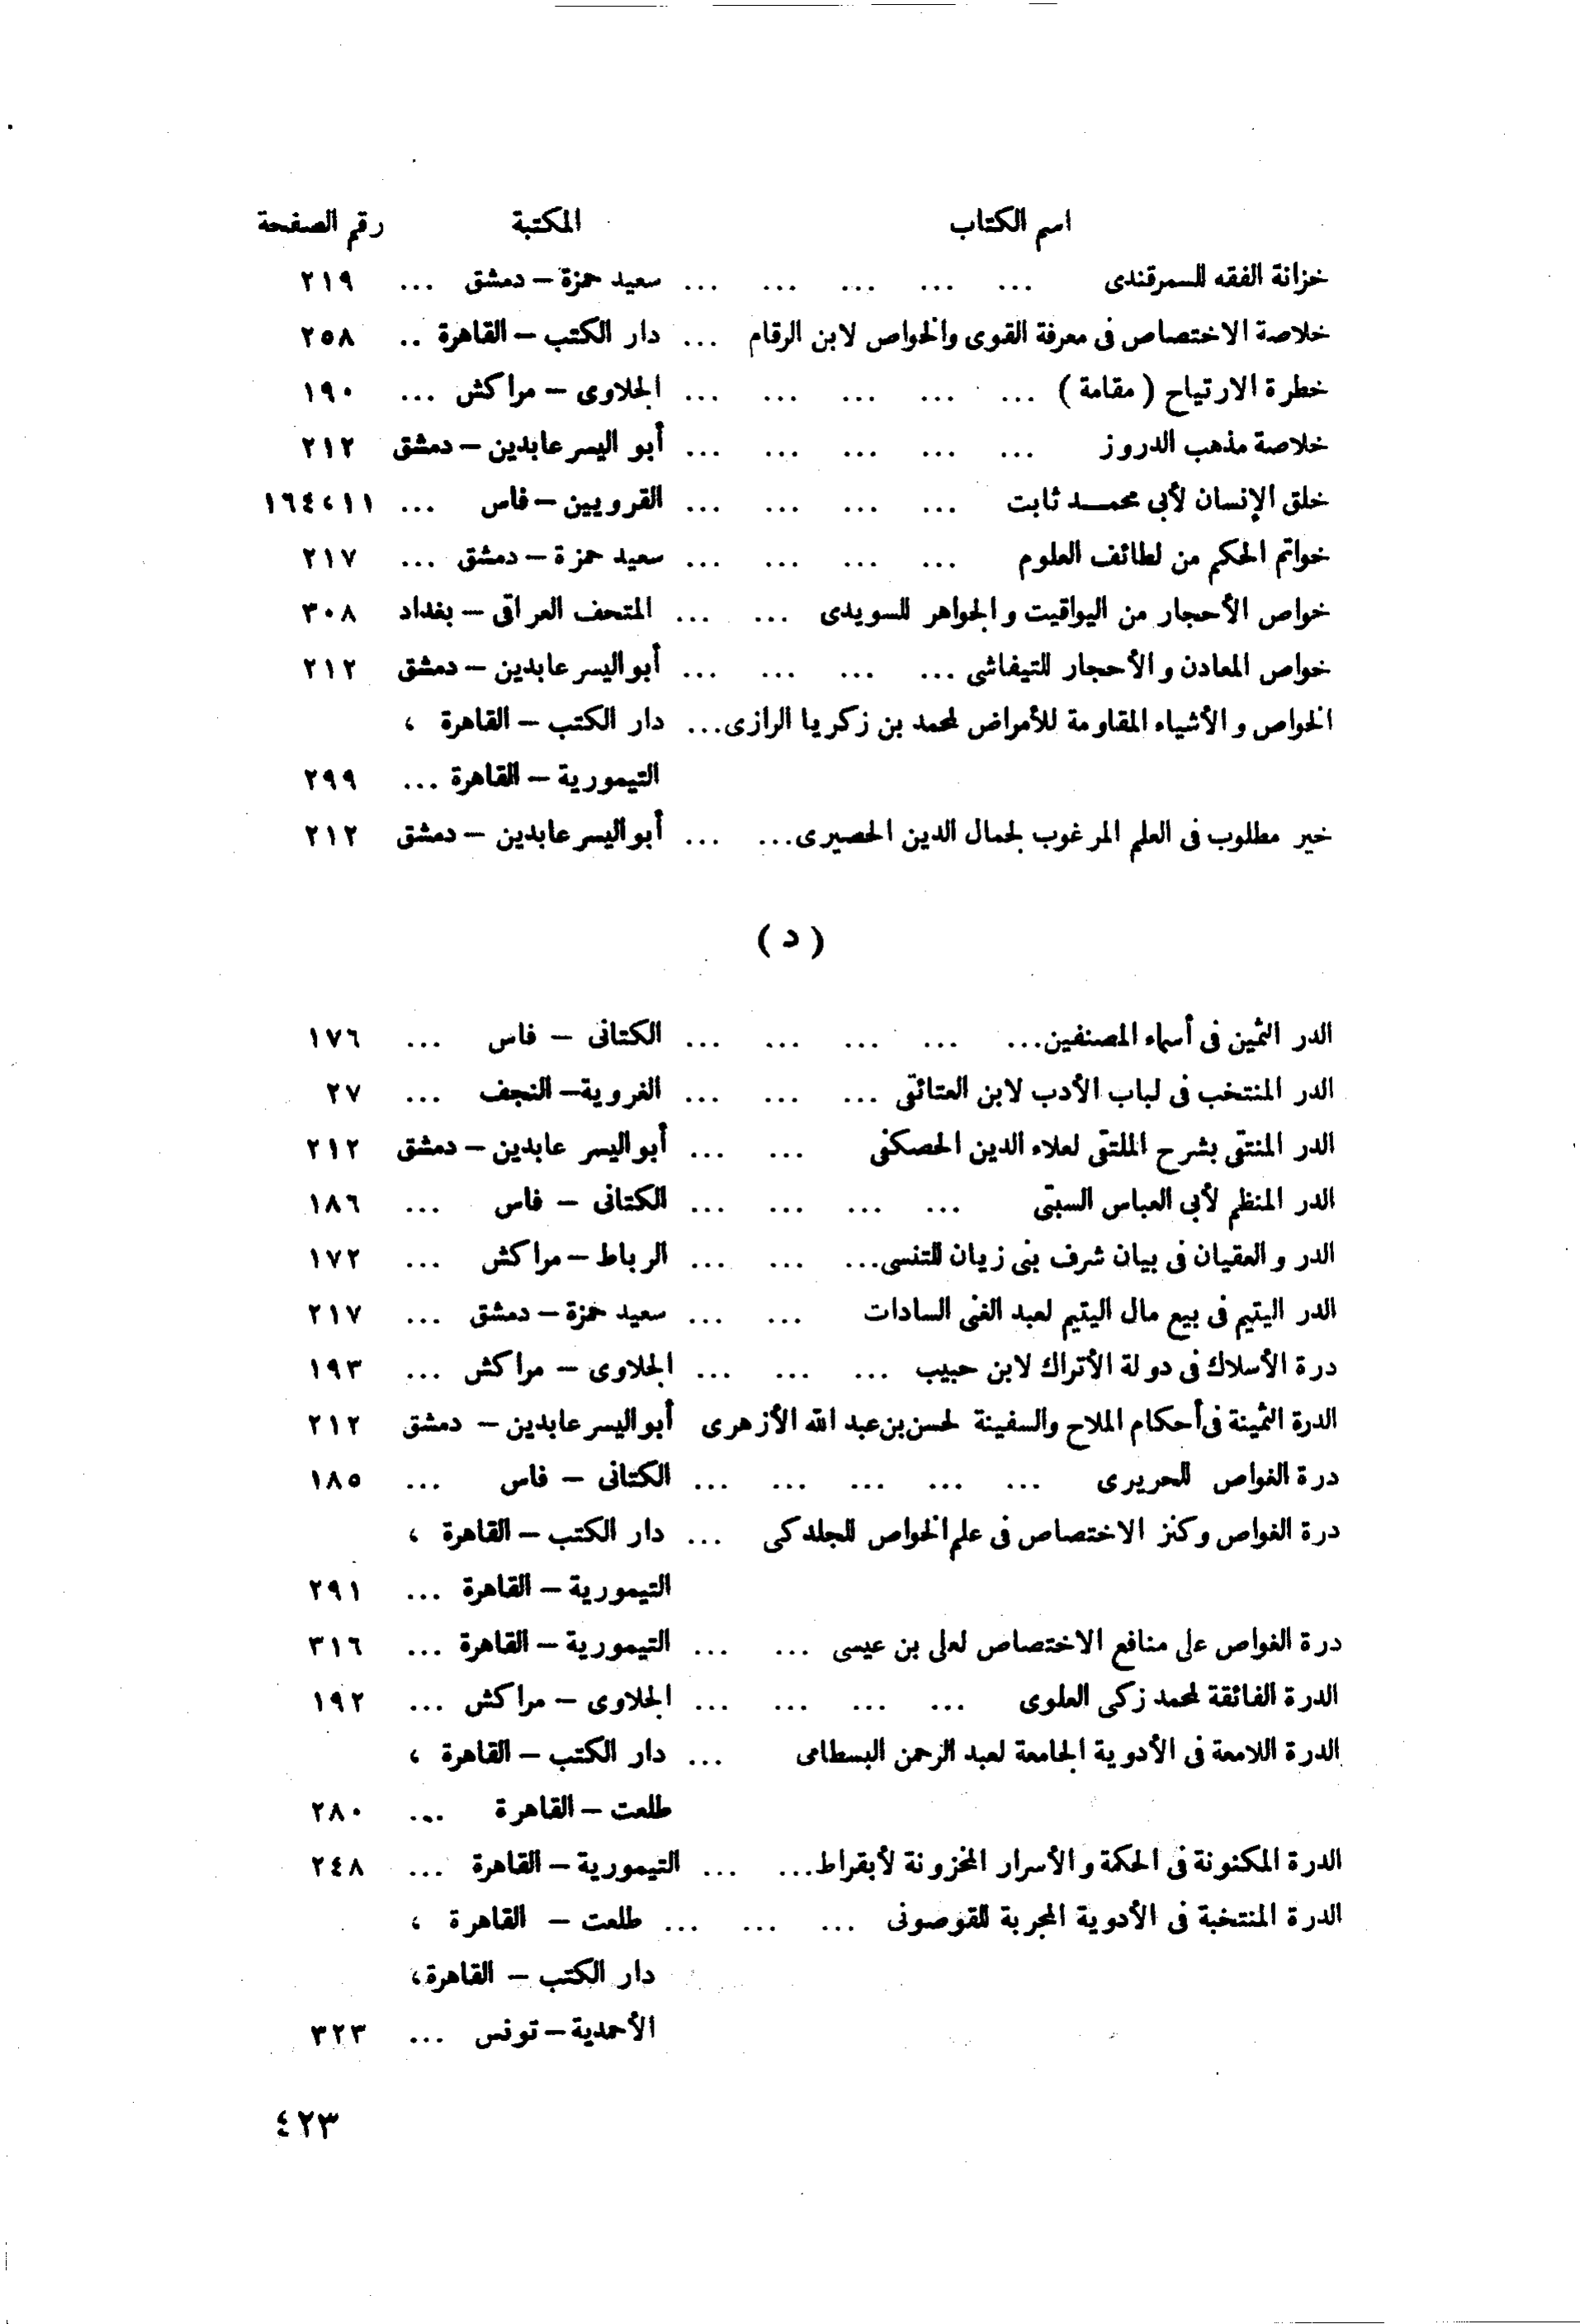 اسم الكتاب المكتبة رقم الصفحة
خزانة الفقه للسمرقندى ... ... ... ... ... سعيد حمزة – دمشق ... ٢١٩
خلاصة الاختصاص فى معرفة القوى والخواص لابن الرقام ... دار الكتب – القاهرة .. ٢٥٨
خطرة الارتياح ( مقامة ) ... ... ... ... ... الجلاوى – مراكش ... ١٩٠
خلاصة مذهب الدروز ... ... ... ... ... أبو اليسر عابدين – دمشق ٢١٢
خلق الإنسان لأبى محمد ثابت ... ... ... ... القرويين – فاس ... ١١ ، ١٦٤
خواتم الحكم من لطائف العلوم ... ... ... ... سعيد حمزة – دمشق ... ٢١٧
خواص الأحجار من اليواقيت والجواهر للسويدى ... ... المتحف العراقى – بغداد ٣٠٨
خواص المعادن والأحجار للتيفاشى ... ... ... ... أبو اليسر عابدين – دمشق ٢١٢
الخواص والأشياء المقاومة للأمراض لمحمد بن زكريا الرازى ... دار الكتب – القاهرة ،
التيمورية – القاهرة ... ٢٩٩
خير مطلوب فى العلم المرغوب لجمال الدين الحصيرى ... ... أبو اليسر عابدين – دمشق ٢١٢
( د )
الدر الثمين فى أسماء المصنفين ... ... ... ... ... الكتانى – فاس ... ١٧٦
الدر المنتخب فى لباب الأدب لابن العتائقى ... ... ... الغروية – النجف ... ٢٧
الدر المنتقى بشرح الملتقى لعلاء الدين الحصكفى ... ... أبو اليسر عابدين – دمشق ٢١٢
الدر المنظم لأبى العباس السبتى ... ... ... ... الكتانى – فاس ... ١٨٦
الدر والعقيان فى بيان شرف بنى زيان للتنسى ... ... ... الرباط – مراكش ... ١٧٢
الدر اليتيم فى بيع مال اليتيم لعبد الغنى السادات ... ... سعيد حمزة – دمشق ... ٢١٧
درة الأسلاك فى دولة الأتراك لابن حبيب ... ... ... الجلاوى – مراكش ... ١٩٣
الدرة الثمينة فى أحكام الملاح والسفينة لحسن بن عبد الله الأزهرى أبو اليسر عابدين – دمشق ٢١٢
درة الغواص للحريرى ... ... ... ... ... الكتانى – فاس ... ١٨٥
درة الغواص وكنز الاختصاص فى علم الخواص للجلدكى ... دار الكتب – القاهرة ،
التيمورية – القاهرة ... ٢٩١
درة الغواص على منافع الاختصاص لعلى بن عيسى ... ... التيمورية – القاهرة ... ٣١٦
الدرة الفائقة لمحمد زكى العلوى ... ... ... ... الجلاوى – مراكش ... ١٩٢
الدرة اللامعة فى الأدوية الجامعة لعبد الرحمن البسطامى ... دار الكتب – القاهرة ،
طلعت – القاهرة ... ٢٨٠
الدرة المكنونة فى الحكمة والأسرار المخزونة لأبقراط ... ... التيمورية – القاهرة ... ٢٤٨
الدرة المنتخبة فى الأدوية المجربة للقوصونى ... ... ... طلعت – القاهرة ،
دار الكتب – القاهرة ،
الأحمدية – تونس ... ٣٢٣
٤٢٣